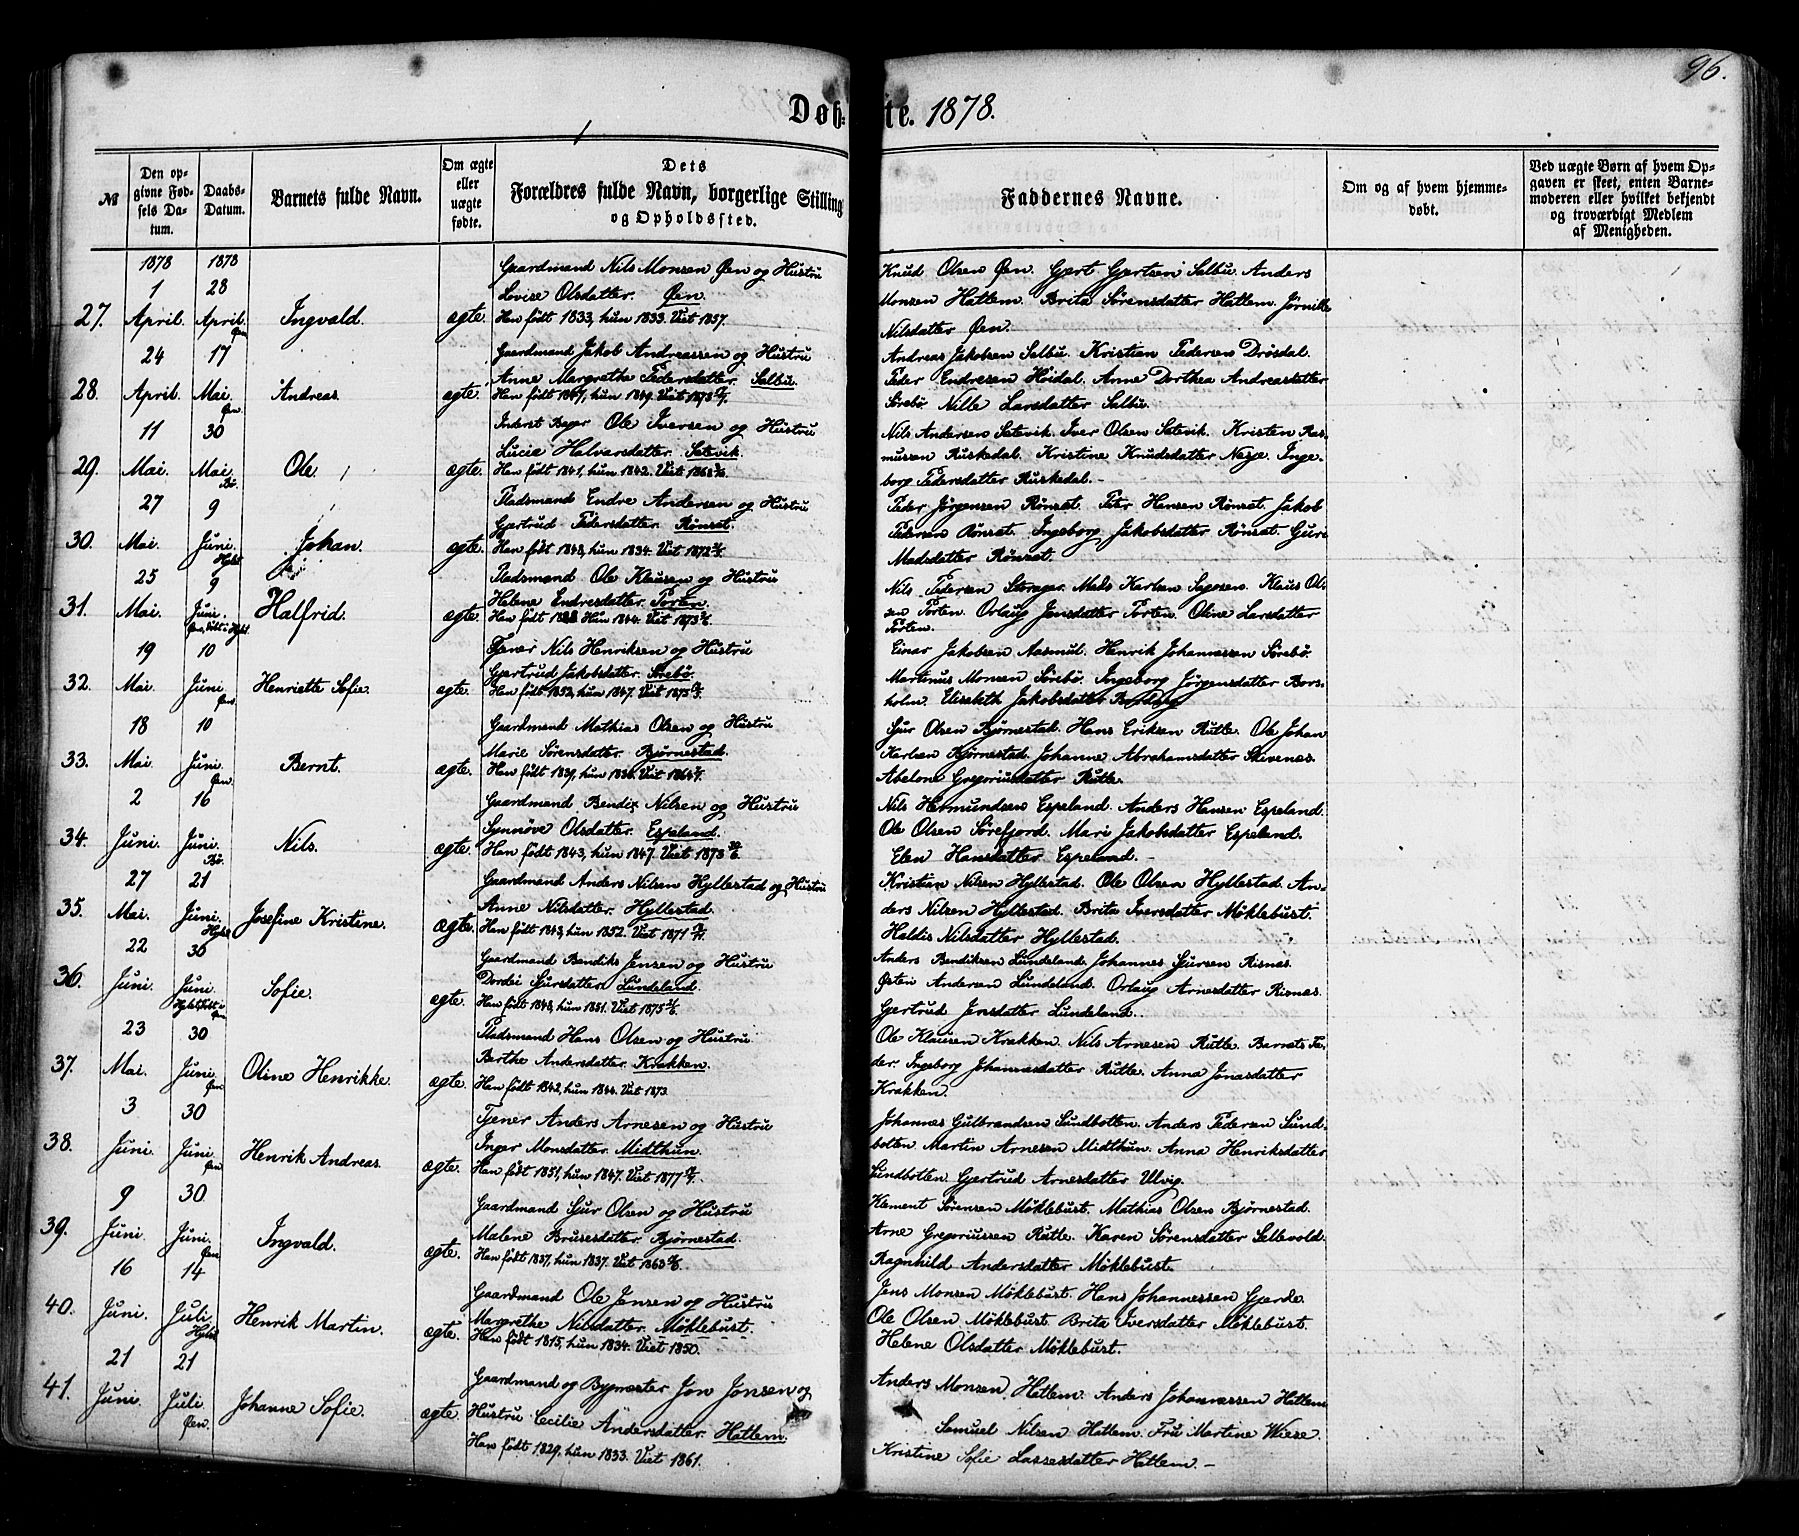 96.
Døbte. 1878.
№
Den opgivne Fødsels Datum.
Daabs-Datum.
Barnets fulde Navn.
Om ægte eller uægte fødte.
Dets Forældres fulde Navn, borgerlige Stilling og Opholdssted.
Faddernes Navne.
Om og af hvem hjemmedøbt.
Ved uægte Børn af hvem Opgaven er skeet, enten Barnemoderen eller hvilket bekjendt og troværdigt Medlem af Menigheden.
1878 1878
27. 1 April. 28 April. Øen Ingvald. ægte.
Gaardmand Nils Monsen Øen og Hustru
Lovise Olsdatter. Øen.
Han født 1833, hun 1833. Viet 1857.
Knud Olsen Øen. Gjert Gjertsen Salbu. Anders
Monsen Hatlem. Brita Sørensdatter Hatlem. Jørnike
Nilsdatter Øen.
28. 24 April. 17 Mai. Øen. Andreas. ægte.
Gaardmand Jakob Andreassen og Hustru
Anne Margrethe Pedersdatter. Salbu.
Han født 1847, hun 1849. Viet 1873
Andreas Jakobsen Salbu. Kristian Pedersen Drøsdal.
Peder Endresen Høidal. Anne Dorthea Andreasdatter
Sørebø. Nille Larsdatter Salbu.
29. 11 Mai. 30 Mai. Bø. Ole. ægte.
Inderst Bager Ole Iversen og Hustru
Lucie Halvarsdatter. Sætevik.
Han født 1841, hun 1842. Viet 1868
Nils Andersen Sætevik. Iver Olsen Sætevik. Kristen Ras-
mussen Ruskedal. Kristine Knudsdatter Nese. Inge-
borg Pedersdatter Ruskedal.
30. 27 Mai. 9 Juni. Hylst. Johan. ægte.
Pladsmand Endre Andersen og Hustru
Gjertrud Pedersdatter. Rønset.
Han født 1848, hun 1834. Viet 1872
Peder Jørgensen Rønset. Peter Hansen Rønset. Jakob
Pedersen Rønset. Ingeborg Jakobsdatter Rønset. Guri
Madsdatter Rønset.
31. 25 Mai. 9 Juni. Halfrid. ægte.
Pladsmand Ole Klausen og Hustru
Helene Endresdatter. Porten.
Han født Hun 1844. Viet 1873
Nils Pedersen Storager. Mads Karlsen Sagsen. Klaus Ol-
sen Porten. Orlaug Jensdatter Porten. Oline Larsdatter
Porten.
32. 19 Mai. 10 Juni. Øen. Henriette Sofie. ægte.
Tjener Nils Henriksen og Hustru
Gjertrud Jakobsdatter. Sørebø.
Han født 1852, hun 1847. Viet 1875
Einar Jakobsen Aasmul. Henrik Johannessen Sørebø.
Martinus Monsen Sørebø. Ingeborg Jørgensdatter Bors-
holm. Elisabeth Jakobsdatter
33. 18 Mai. 10 Juni. Øen. Bernt. ægte.
Gaardmand Mathias Olsen og Hustru
Marie Sørensdatter. Bjørnestad.
Sjur Olsen Bjørnestad. Hans Eriksen Rutle. Ole Johan
Karlsen Bjørnestad. Johanne Abrahamsdatter Skivenes.
Abelone Gregoriusdatter Rutle.
34. 2 Juni. 16 Juni. Bø. Nils. ægte.
Gaardmand Bendix Nilsen og Hustru
Synnøve Olsdatter. Espeland.
Han født 1843, hun 1847. Viet 1873
Nils Hermundsen Espeland. Anders Hansen Espeland.
Ole Olsen Sørefjord. Mari Jakobsdatter Espeland.
Elen Hansdatter Espeland.
35. 27 Mai. 21 Juni. Hylst Josefine Kristine. ægte.
Gaardmand Anders Nilsen Hyllestad og Hustru
Anne Nilsdatter. Hyllestad.
Han født 1843, hun 1852. Viet 1871
Kristian Nilsen Hyllestad. Ole Olsen Hyllestad. An-
ders Nilsen Hyllestad. Brita Iversdatter Møklebust.
Haldis Nilsdatter Hyllestad.
36. 22 Juni. 30 Juni. Sofie. ægte.
Gaardmand Bendiks Jensen og Hustru
Dordei Sjursdatter. Lundeland.
Han født 1848, hun 1851. Viet 1875
Anders Bendiksen Lundeland. Johannes Sjursen Risnes.
Østen Andersen Lundeland. Orlaug Arnesdatter Risnes.
Gjertrud Jensdatter Lundeland.
37. 23 Mai. 30 Juni. Øen. Oline Henrikke. ægte.
Pladsmand Hans Olsen og Hustru
Berthe Andersdatter. Krakken.
Han født 1842, hun 1844. Viet 1873.
Ole Klausen Krakken. Nils Arnesen Rutle. Barnets Fa-
der. Ingeborg Johannesdatter Rutle. Anna Jonasdatter
Krakken.
38. 3 Juni. 30 Juni. Øen. Henrik Andreas. ægte.
Tjener Anders Arnesen og Hustru
Inger Monsdatter. Midthun.
Han født 1851, hun 1847. Viet 1877
Johannes Gulbrandsen Sundbotten. Anders Pedersen Sund-
botten. Martin Arnesen Midthun. Anna Henriksdatter
Sundbotten. Gjertrud Arnesdatter Ulvig.
39. 9 Juni. 30 Juni. Øen. Ingvald. ægte.
Gaardmand Sjur Olsen og Hustru
Malene Brusesdatter. Bjørnestad.
Han født 1837, hun 1837. Viet 1863
Klement Sørensen Møklebust. Mathias Olsen Bjørnestad.
Arne Gregoriussen Rutle. Karen Sørensdatter Sellevold.
Ragnhild Andersdatter Møklebust.
40. 16 Juni. 14 Juli. Hylst. Henrik Martin. ægte.
Gaardmand Ole Jensen og Hustru
Margrethe Nilsdatter. Møklebust.
Han født 1815, hun 1834. Viet 1850.
Jens Monsen Møklebust. Hans Johannessen Gjerde.
Ole Olsen Møklebust. Brita Iversdatter Møklebust.
Helene Olsdatter Møklebust.
41. 21 Juni. 21 Juli. Øen. Johanne Sofie. ægte.
Gaardmand og Bygmester Jon Jonsen og
Hustru Cecilie Andersdatter. Hatlem.
Han født 1829, hun 1833. Viet 1861.
Anders Monsen Hatlem. Anders Johannessen Hatlem
Samuel Nilsen Hatlem. Fru Martine Wiese.
Kristine Sofie Lassesdatter Hatlem.